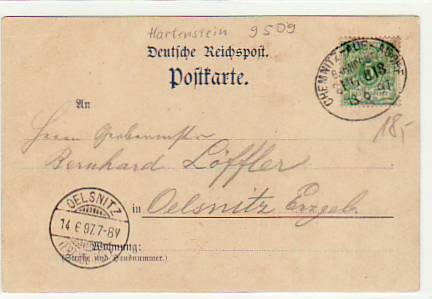 Hartenstein 9509
Deutsche Reichspost.
Postkarte.
CHEMNITZ-AUE-ADORF
818
An
Herrn
18,-
Bernhard Löffler
OELSNITZ
14 6 97. 7-8V
in Oelsnitz Erzgeb.
Wohnung:
(Straße und Hausnummer.)